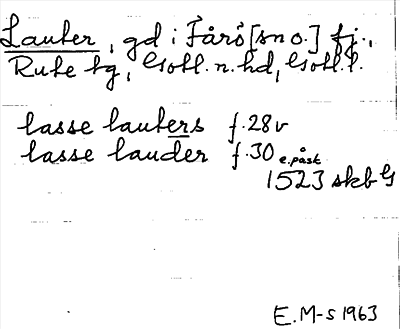 Lauter, gd i Fårö [sn o.] fj.,
Rute tg, Gotl. n. hd, Gotl. l.
lasse lauters f. 28 v
lasse lauder f. 30 e. påst
1523 skb G
E. M-s 1963